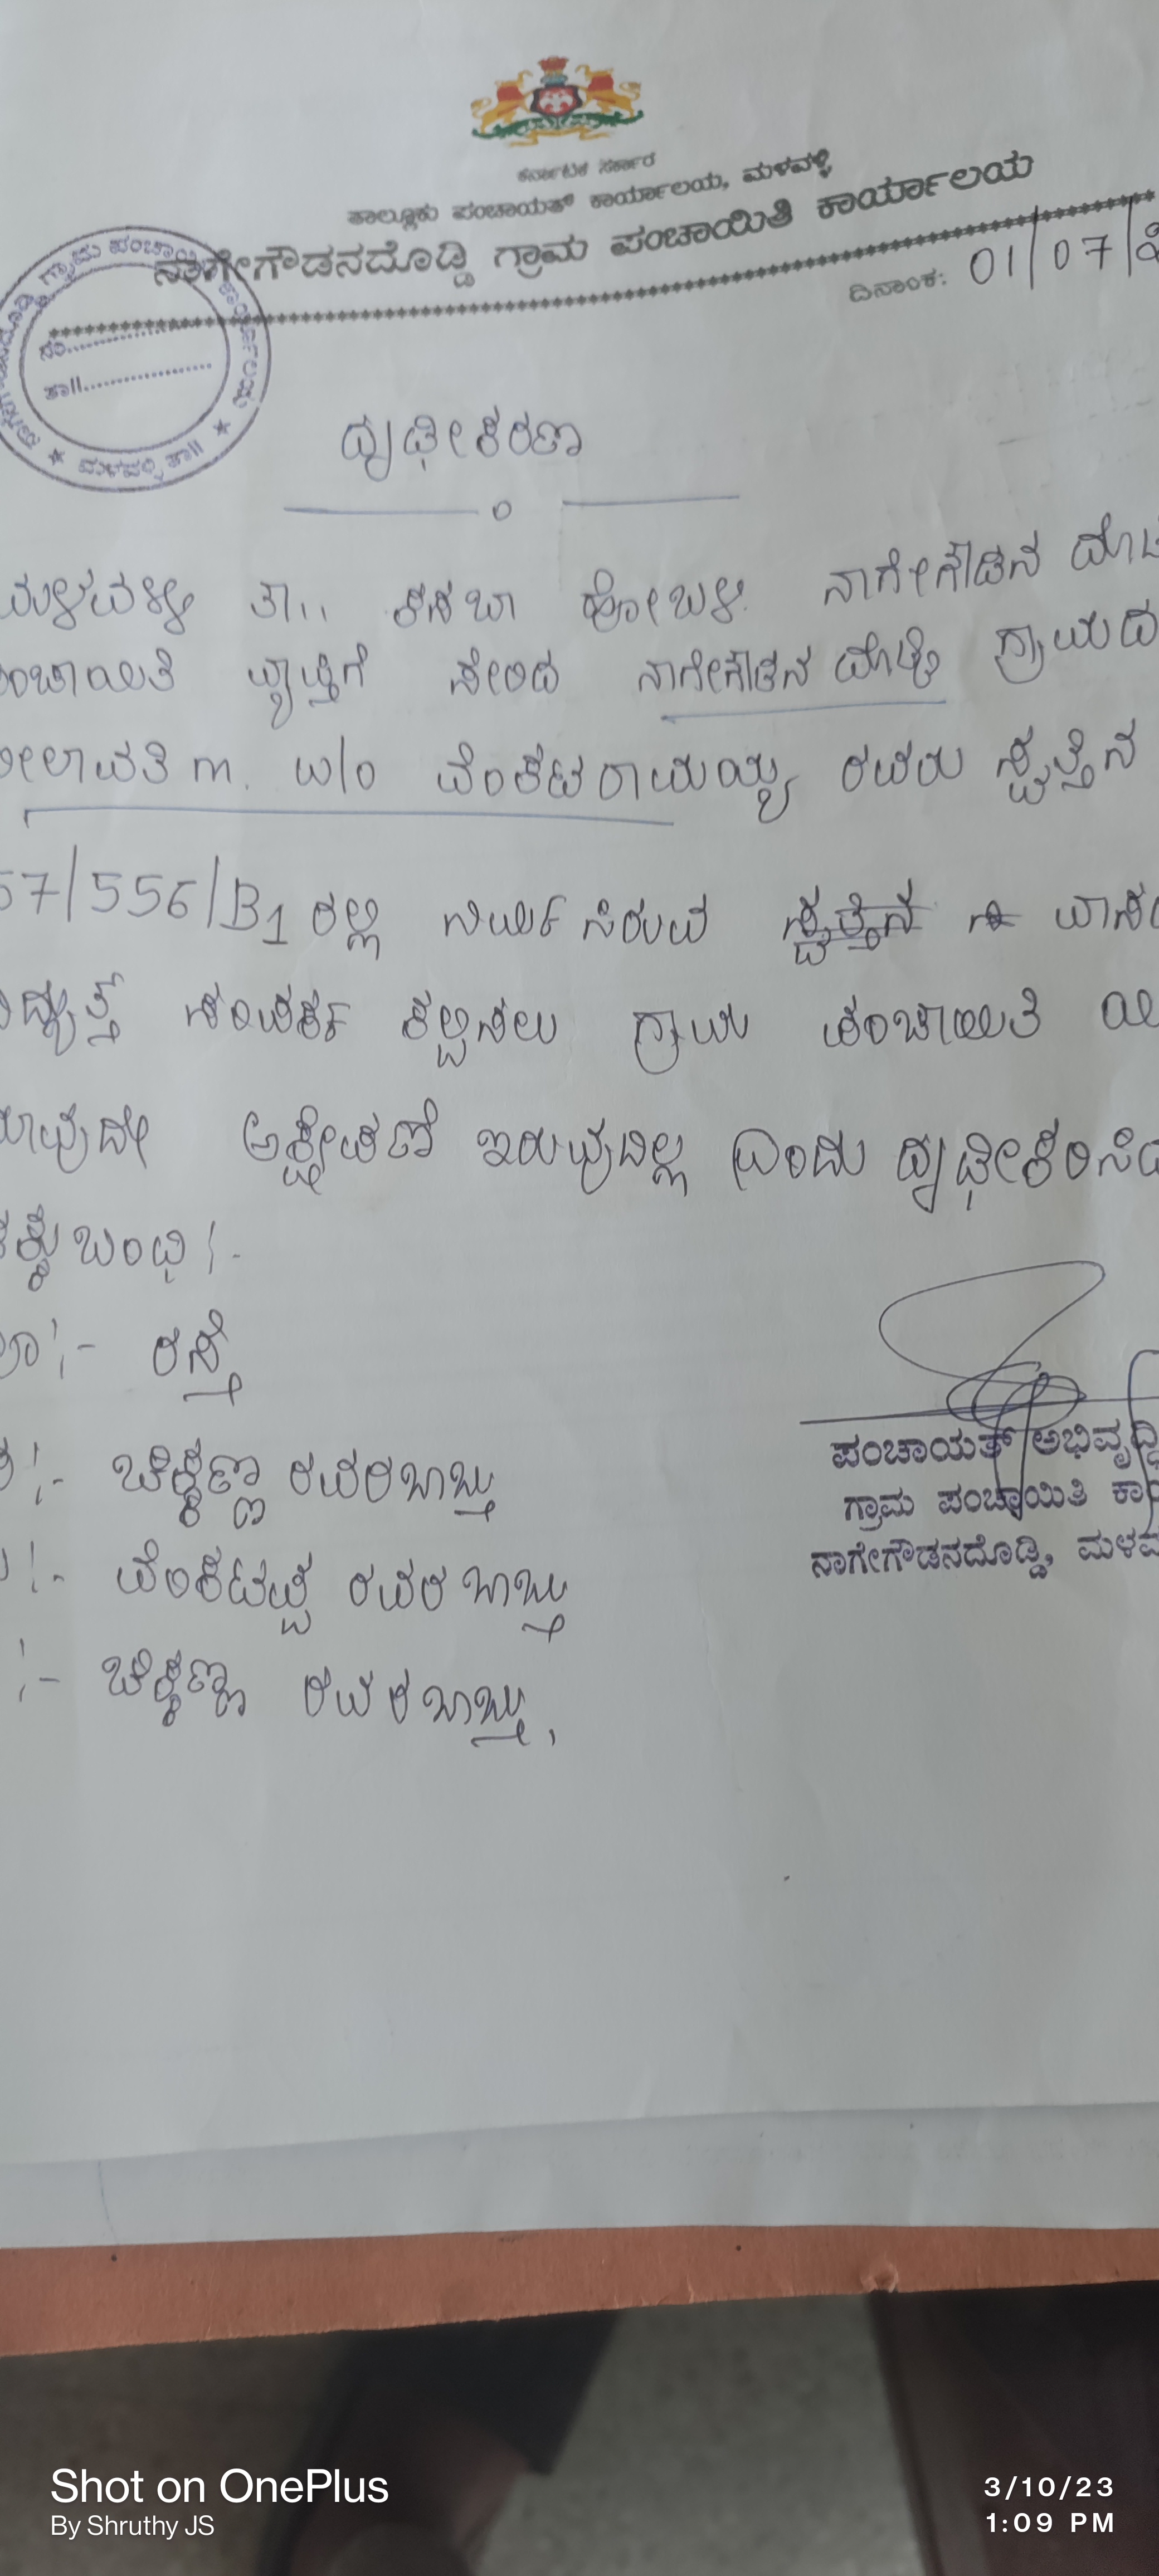 ಕರ್ನಾಟಕ ಸರ್ಕಾರ
ತಾಲ್ಲೂಕು ಪಂಚಾಯತ್ ಕಾರ್ಯಾಲಯ, ಮಳವಳ್ಳಿ
ನಾಗೇಗೌಡನದೊಡ್ಡಿ ಗ್ರಾಮ ಪಂಚಾಯಿತಿ ಕಾರ್ಯಾಲಯ
ದಿನಾಂಕ: 01/07/
ಗ್ರಾಮ ಪಂಚಾಯಿತಿ ಕಾರ್ಯಾಲಯ
ನಂ
ತಾ||
★ ಮಳವಳ್ಳಿ ತಾ|| ★
ದೃಢೀಕರಣ
ಮಳವಳ್ಳಿ ತಾ,, ಕಸಬಾ ಹೋಬಳಿ ನಾಗೇಗೌಡನ
ಪಂಚಾಯಿತಿ ವ್ಯಾಪ್ತಿಗೆ ಸೇರಿದ ನಾಗೇಗೌಡನ ದೊಡ್ಡಿ ಗ್ರಾಮದ
ಲೀಲಾವತಿ m. w/o ವೆಂಕಟರಾಮಯ್ಯ ರವರು ಸ್ವತ್ತಿನ
57/556/B1 ರಲ್ಲಿ ನಿರ್ಮಿಸಿರುವ ಸ್ವತ್ತಿನ
ವಿದ್ಯುತ್ ಸಂಪರ್ಕ ಕಲ್ಪಿಸಲು ಗ್ರಾಮ ಪಂಚಾಯಿತಿ
ಯಾವುದೇ ಆಕ್ಷೇಪಣೆ ಇರುವುದಿಲ್ಲ ಎಂದು ದೃಢೀಕರಿಸಿದೆ
ಚಕ್ಕುಬಂಧಿ:-
:- ರಸ್ತೆ
:- ಚಿಕ್ಕಣ್ಣ ರವರ ಬಾಬ್ತು
:- ವೆಂಕಟಪ್ಪ ರವರ ಬಾಬ್ತು
:- ಚಿಕ್ಕಣ್ಣ ರವರ ಬಾಬ್ತು,
ಪಂಚಾಯತ್ ಅಭಿವೃದ್ಧಿ
ಗ್ರಾಮ ಪಂಚಾಯಿತಿ
ನಾಗೇಗೌಡನದೊಡ್ಡಿ,
Shot on OnePlus
By Shruthy JS
3/10/23
1:09 PM